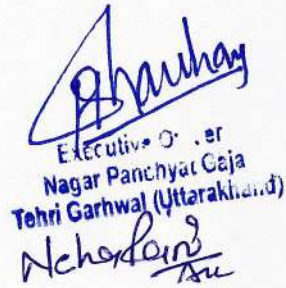 Chauhan
Executive O er
Nagar Panchyat Gaja
Tehri Garhwal (Uttarakhand)
Neha